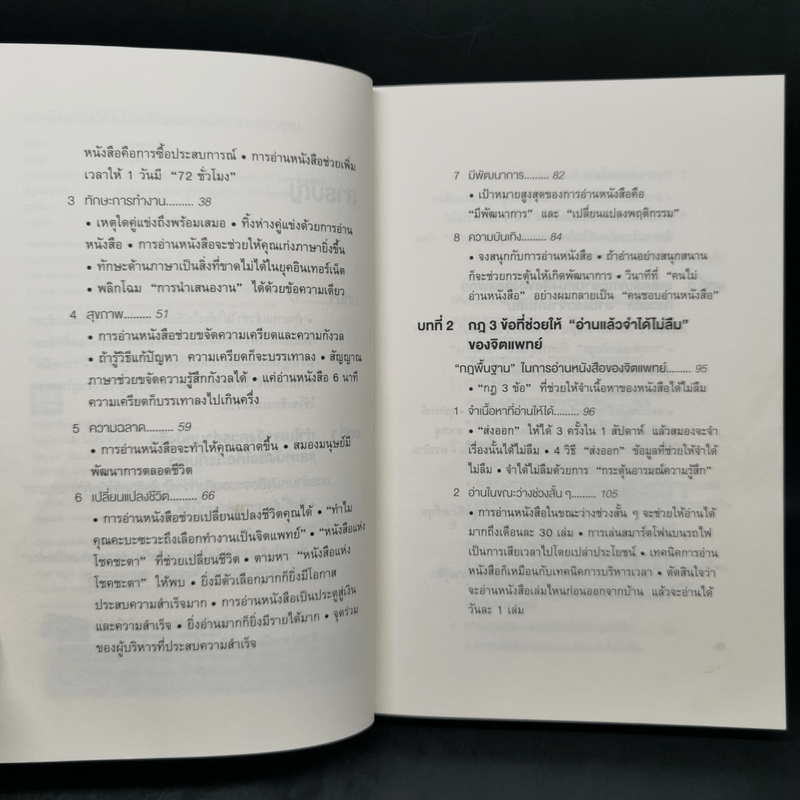 หนังสือคือการซื้อประสบการณ์ • การอ่านหนังสือช่วยเพิ่ม
เวลาให้ 1 วันมี “72 ชั่วโมง”
3 ทักษะการทำงาน......... 38
• เหตุใดคู่แข่งถึงพร้อมเสมอ • ทิ้งห่างคู่แข่งด้วยการอ่าน
หนังสือ • การอ่านหนังสือจะช่วยให้คุณเก่งภาษายิ่งขึ้น
• ทักษะด้านภาษาเป็นสิ่งที่ขาดไม่ได้ในยุคอินเทอร์เน็ต
• พลิกโฉม “การนำเสนองาน” ได้ด้วยข้อความเดียว
4 สุขภาพ......... 51
• การอ่านหนังสือช่วยขจัดความเครียดและความกังวล
• ถ้ารู้วิธีแก้ปัญหา ความเครียดก็จะบรรเทาลง • สัญญาณ
ภาษาช่วยขจัดความรู้สึกกังวลได้ • แค่อ่านหนังสือ 6 นาที
ความเครียดก็บรรเทาลงไปเกินครึ่ง
5 ความฉลาด......... 59
• การอ่านหนังสือจะทำให้คุณฉลาดขึ้น • สมองมนุษย์มี
พัฒนาการตลอดชีวิต
6 เปลี่ยนแปลงชีวิต......... 66
• การอ่านหนังสือช่วยเปลี่ยนแปลงชีวิตคุณได้ • “ทำไม
คุณคะบะซะวะถึงเลือกทำงานเป็นจิตแพทย์” • “หนังสือแห่ง
โชคชะตา” ที่ช่วยเปลี่ยนชีวิต • ตามหา “หนังสือแห่ง
โชคชะตา” ให้พบ • ยิ่งมีตัวเลือกมากก็ยิ่งมีโอกาส
ประสบความสำเร็จมาก • การอ่านหนังสือเป็นประตูสู่เงิน
และความสำเร็จ • ยิ่งอ่านมากก็ยิ่งมีรายได้มาก • จุดร่วม
ของผู้บริหารที่ประสบความสำเร็จ
7 มีพัฒนาการ......... 82
• เป้าหมายสูงสุดของการอ่านหนังสือคือ
“มีพัฒนาการ” และ “เปลี่ยนแปลงพฤติกรรม”
8 ความบันเทิง......... 84
• จงสนุกกับการอ่านหนังสือ • ถ้าอ่านอย่างสนุกสนาน
ก็จะช่วยกระตุ้นให้เกิดพัฒนาการ • วินาทีที่ “คนไม่
อ่านหนังสือ” อย่างผมกลายเป็น “คนชอบอ่านหนังสือ”
บทที่ 2 กฎ 3 ข้อที่ช่วยให้ “อ่านแล้วจำได้ไม่ลืม”
ของจิตแพทย์
“กฎพื้นฐาน” ในการอ่านหนังสือของจิตแพทย์......... 95
• “กฎ 3 ข้อ” ที่ช่วยให้จำเนื้อหาของหนังสือได้ไม่ลืม
1 จำเนื้อหาที่อ่านให้ได้......... 96
• “ส่งออก” ให้ได้ 3 ครั้งใน 1 สัปดาห์ แล้วสมองจะจำ
เรื่องนั้นได้ไม่ลืม • 4 วิธี “ส่งออก” ข้อมูลที่ช่วยให้จำได้
ไม่ลืม • จำได้ไม่ลืมด้วยการ “กระตุ้นอารมณ์ความรู้สึก”
2 อ่านในขณะว่างช่วงสั้น ๆ......... 105
• การอ่านหนังสือในขณะว่างช่วงสั้น ๆ จะช่วยให้อ่านได้
มากถึงเดือนละ 30 เล่ม • การเล่นสมาร์ตโฟนบนรถไฟ
เป็นการเสียเวลาไปโดยเปล่าประโยชน์ • เทคนิคการอ่าน
หนังสือก็เหมือนกับเทคนิคการบริหารเวลา • ตัดสินใจว่า
จะอ่านหนังสือเล่มไหนก่อนออกจากบ้าน แล้วจะอ่านได้
วันละ 1 เล่ม